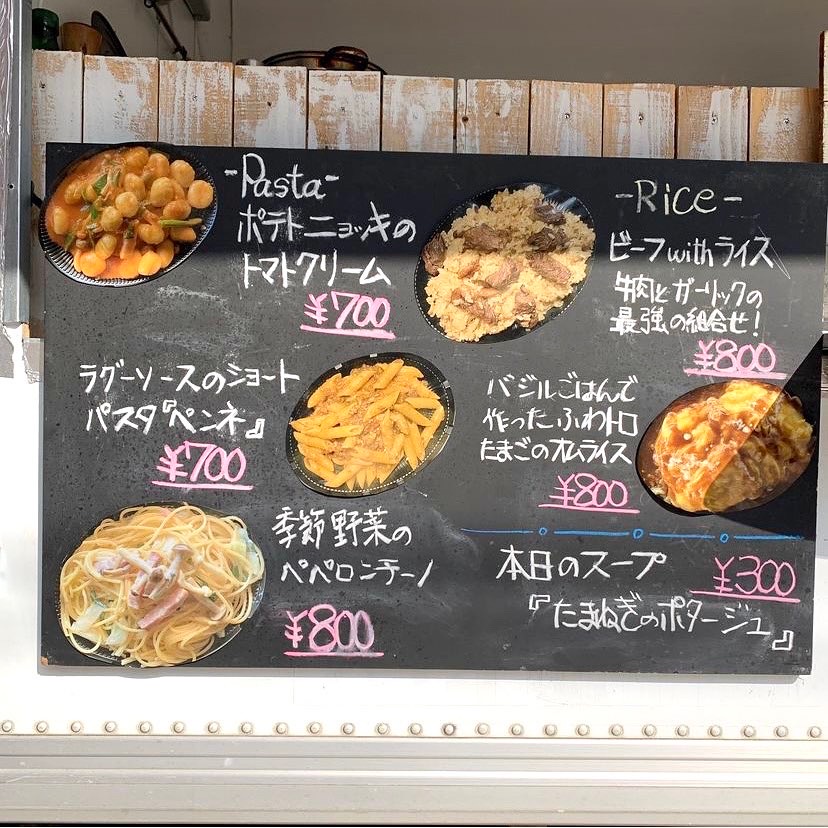 -Pasta-
ポテトニョッキの
トマトクリーム
¥700
ラグーソースのショート
パスタ『ペンネ』
¥700
季節野菜の
ペペロンチーノ
¥800
-Rice-
ビーフwithライス
牛肉とガーリックの
最強の組合せ!
¥800
バジルごはんで
作ったふわトロ
たまごのオムライス
¥800
本日のスープ ¥300
『たまねぎのポタージュ』